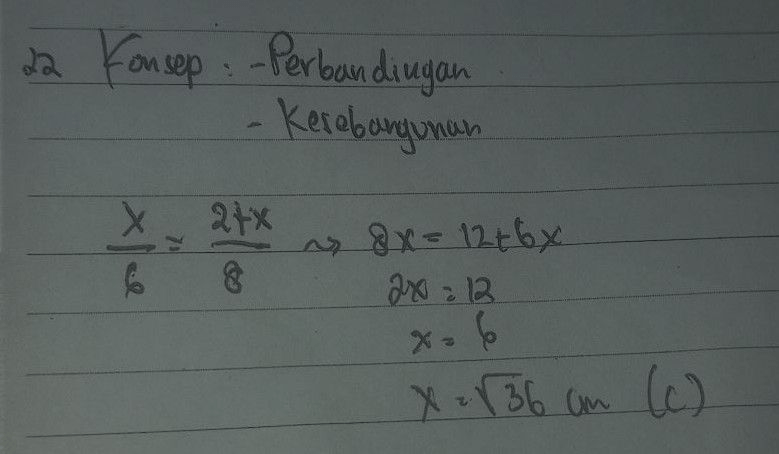 22 Konsep : - Perbandingan
- Kesebangunan
x/6 = 2+x/8 ~> 8x = 12+6x
2x = 12
x = 6
x = √36 cm (C)